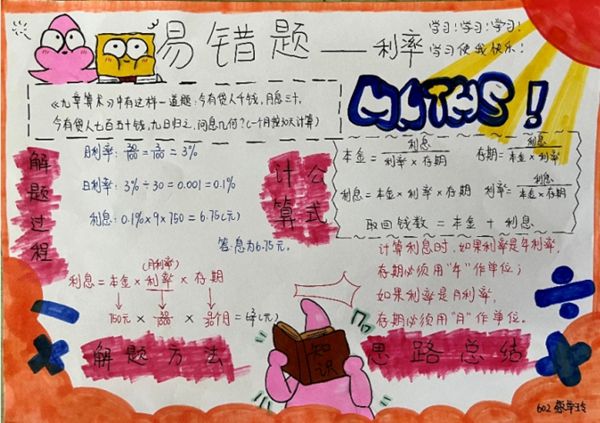 易错题——利率
学习!学习!学习!
学习使我快乐!
MATHS!
《九章算术》中有这样一道题:今有贷人千钱,月息三十,
今有贷人七百五十钱,九日归之,问息几何?(一个月按30天计算)
解题过程
月利率:30/1000=3/100=3%
日利率:3%÷30=0.001=0.1%
利息:0.1%×9×750=6.75(元)
答:息为6.75元。
计算公式
本金=利息/利率×存期 存期=利息/本金×利率
利息=本金×利率×存期 利率=利息/本金×存期
取回钱数=本金+利息
(月利率)
利息=本金×利率×存期
750元××个月=(元)
解题方法
计算利息时,如果利率是年利率,
存期必须用"年"作单位;
如果利率是月利率,
存期必须用"月"作单位。
思路总结
知识
602